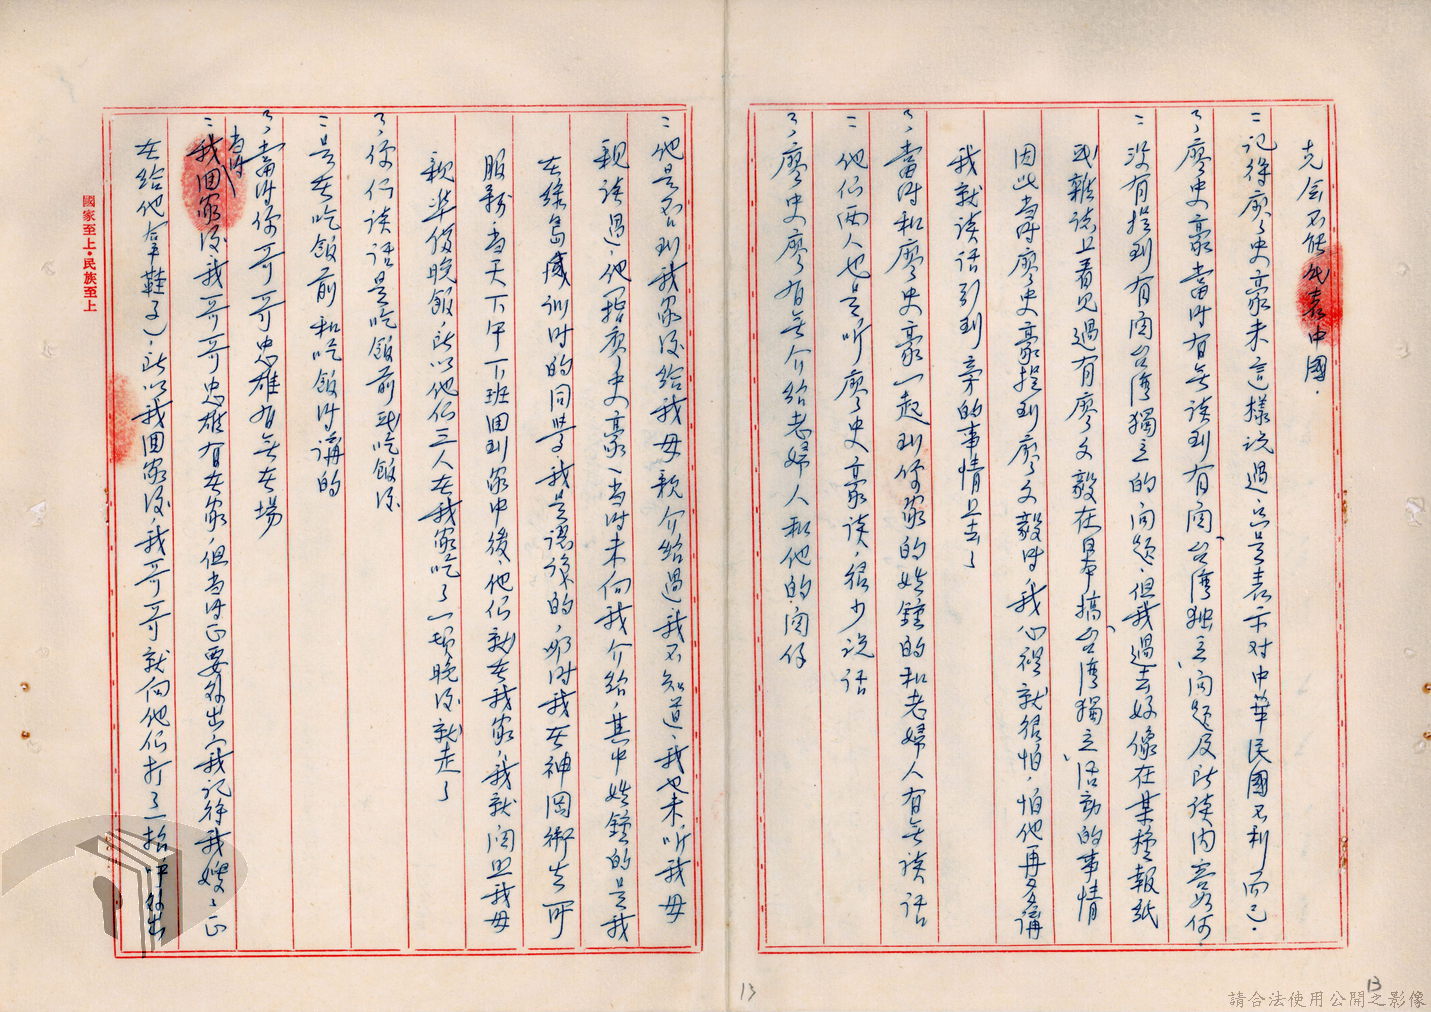 克會不能代表中國.
：記得廖史豪未這樣说過，只是表示对中華民國不利而已.
？廖史豪當时有無谈到有関「台湾独立」问题及所谈内容如何
：没有提到有関台湾獨立的问题，但我過去好像在某種報紙
或雜誌上看见過有廖文毅在日本搞「台湾獨立」活动的事情
因此当时廖史豪提到廖文毅时，我心裡就很怕，怕他再多講
我就谈话引到旁的事情上去了
？當时和廖史豪一起到你家的姓鍾的和老婦人有無谈话
：他们两人也是听廖史豪谈，很少说话
？廖史豪有無介绍老婦人和他的関係
：他是否到我家後给我母親介绍過我不知道，我也未听我母
親谈過，他（指廖史豪）当时未向我介绍，其中姓鍾的是我
在綠島感训时的同學，我是認識的，那时我在神岡衛生所
服務，当天下午下班回到家中後，他们就在我家，我就関照我母
親準俻晚飯，所以他们三人在我家吃了一頓晚後就走了
？你们谈话是吃飯前或吃飯後
：是在吃飯前和吃飯时講的
？當时你哥哥忠雄有無在場
：当时我回家後我哥哥忠雄有在家，但当时正要外出（我记得我嫂ミ正
在给他拿鞋子），所以我回家後，我哥哥就向他们打了一招呼外出
國家至上•民族至上
13
13
請合法使用公開之影像